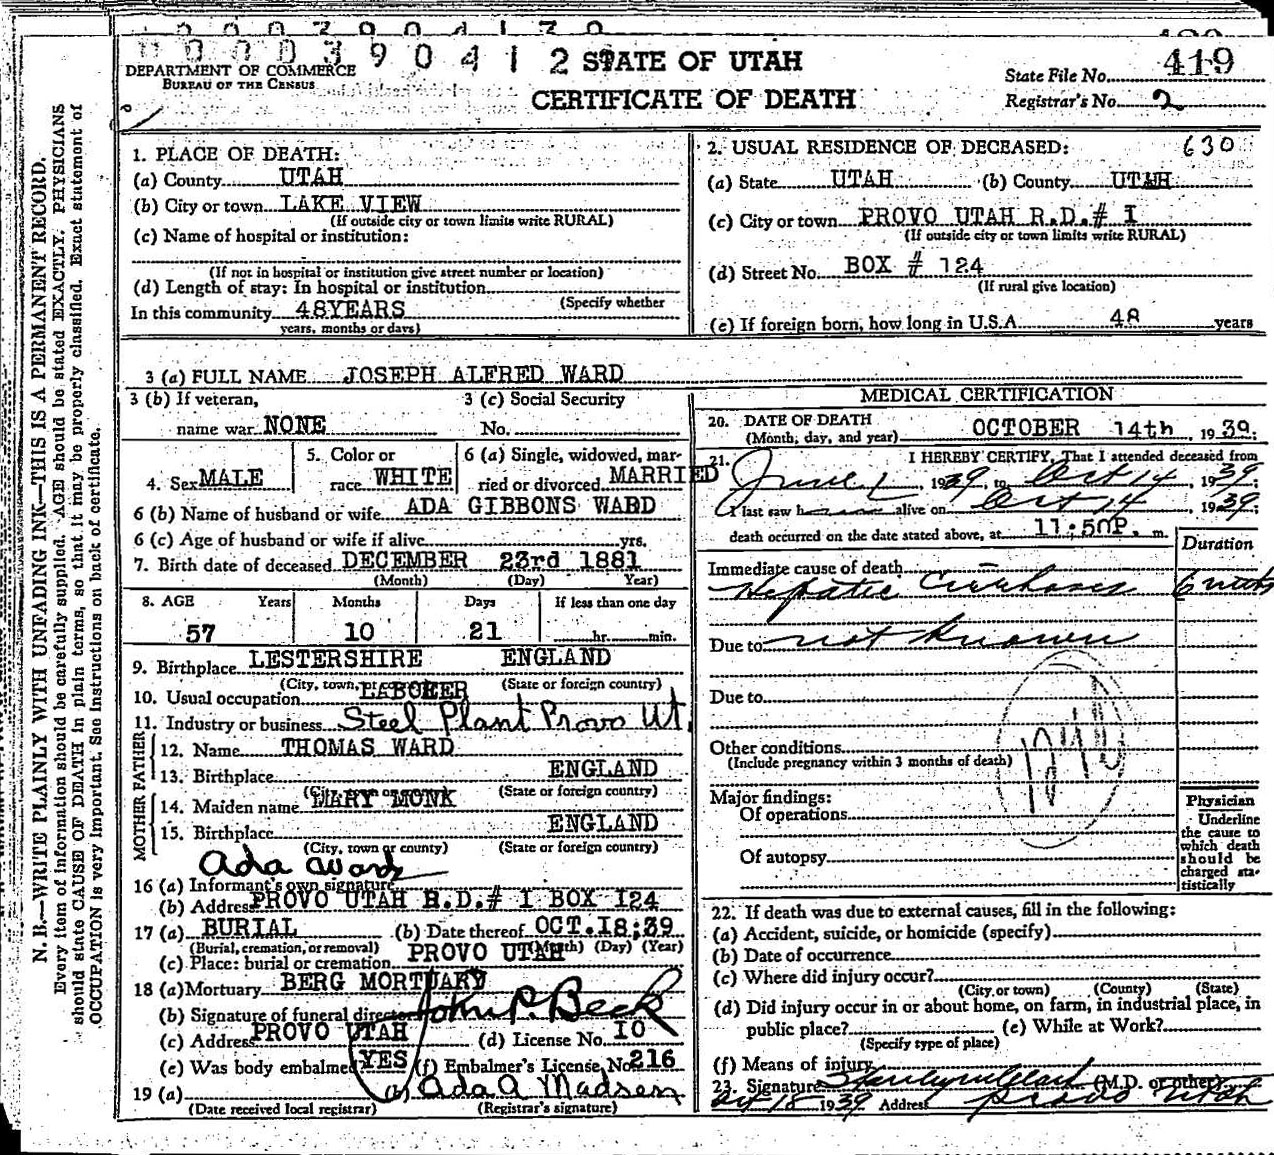 0000390412
DEPARTMENT OF COMMERCE
BUREAU OF THE CENSUS
STATE OF UTAH
CERTIFICATE OF DEATH
State File No. 419
Registrar's No. 2
N. B.—WRITE PLAINLY WITH UNFADING INK—THIS IS A PERMANENT RECORD.
Every item of information should be carefully supplied. AGE should be stated EXACTLY. PHYSICIANS
should state CAUSE OF DEATH in plain terms, so that it may be properly classified. Exact statement of
OCCUPATION is very important. See instructions on back of certificate.
1. PLACE OF DEATH:
(a) County UTAH
(b) City or town LAKE VIEW
(If outside city or town limits write RURAL)
(c) Name of hospital or institution:
(If not in hospital or institution give street number or location)
(d) Length of stay: In hospital or institution
(Specify whether
In this community 48YEARS
years, months or days)
2. USUAL RESIDENCE OF DECEASED: 630
(a) State UTAH (b) County UTAH
(c) City or town PROVO UTAH R.D.# I
(If outside city or town limits write RURAL)
(d) Street No. BOX # 124
(If rural give location)
(e) If foreign born, how long in U.S.A. 48 years
3 (a) FULL NAME JOSEPH ALFRED WARD
3 (b) If veteran,
name war NONE
3 (c) Social Security
No.
4. Sex MALE
5. Color or
race WHITE
6 (a) Single, widowed, mar-
ried or divorced MARRIED
6 (b) Name of husband or wife ADA GIBBONS WARD
6 (c) Age of husband or wife if alive yrs.
7. Birth date of deceased DECEMBER 23rd 1881
(Month) (Day) Year)
8. AGE Years Months Days If less than one day
57 10 21 hr. min.
9. Birthplace LESTERSHIRE ENGLAND
(City, town, (State or foreign country)
10. Usual occupation LABORER
11. Industry or business Steel Plant Provo Ut.
FATHER
12. Name THOMAS WARD
13. Birthplace ENGLAND
(State or foreign country)
MOTHER
14. Maiden name MARY MONK
15. Birthplace ENGLAND
(City, town or county) (State or foreign country)
Ada Ward
16 (a) Informant's own signature
(b) Address PROVO UTAH R.D.# I BOX I24
17 (a) BURIAL (b) Date thereof OCT.I8;39
(Burial, cremation, or removal) (Month) (Day) (Year)
(c) Place: burial or cremation PROVO UTAH
18 (a) Mortuary BERG MORTUARY
(b) Signature of funeral director John P. Beck
(c) Address PROVO UTAH (d) License No. IO
(e) Was body embalmed YES (f) Embalmer's License No. 216
19 (a) (b) Ada A Madsen
(Date received local registrar) (Registrar's signature)
MEDICAL CERTIFICATION
20. DATE OF DEATH
(Month, day, and year) OCTOBER 14th, 1939;
21. I HEREBY CERTIFY, That I attended deceased from
June 1, 1939, to Oct 14, 1939;
I last saw h alive on Oct 14, 1939;
death occurred on the date stated above, at 11;50P. m.
Duration
Immediate cause of death
Hepatic Cirrhosis 6 mths
Due to not known
Due to
Other conditions
(Include pregnancy within 3 months of death)
124B
Major findings:
Of operations
Of autopsy
Physician
Underline
the cause to
which death
should be
charged sta-
tistically
22. If death was due to external causes, fill in the following:
(a) Accident, suicide, or homicide (specify)
(b) Date of occurrence
(c) Where did injury occur?
(City or town) (County) (State)
(d) Did injury occur in or about home, on farm, in industrial place, in
public place? (e) While at Work?
(Specify type of place)
(f) Means of injury
23. Signature Stanley M Clark (M.D. or other)
Oct 18 1939 Address Provo Utah